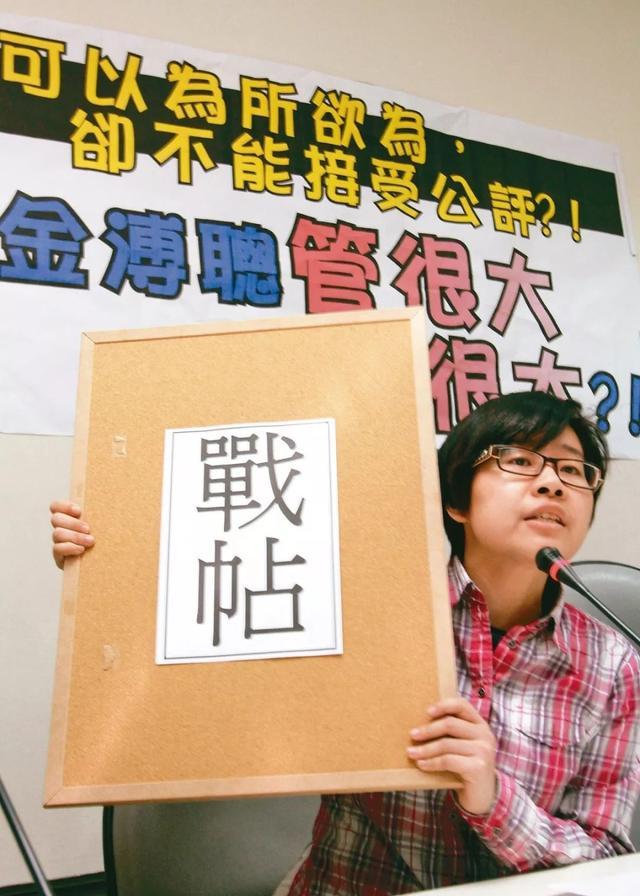 可以為所欲為，
卻不能接受公評?!
金溥聰管很大
很大?!
戰
帖